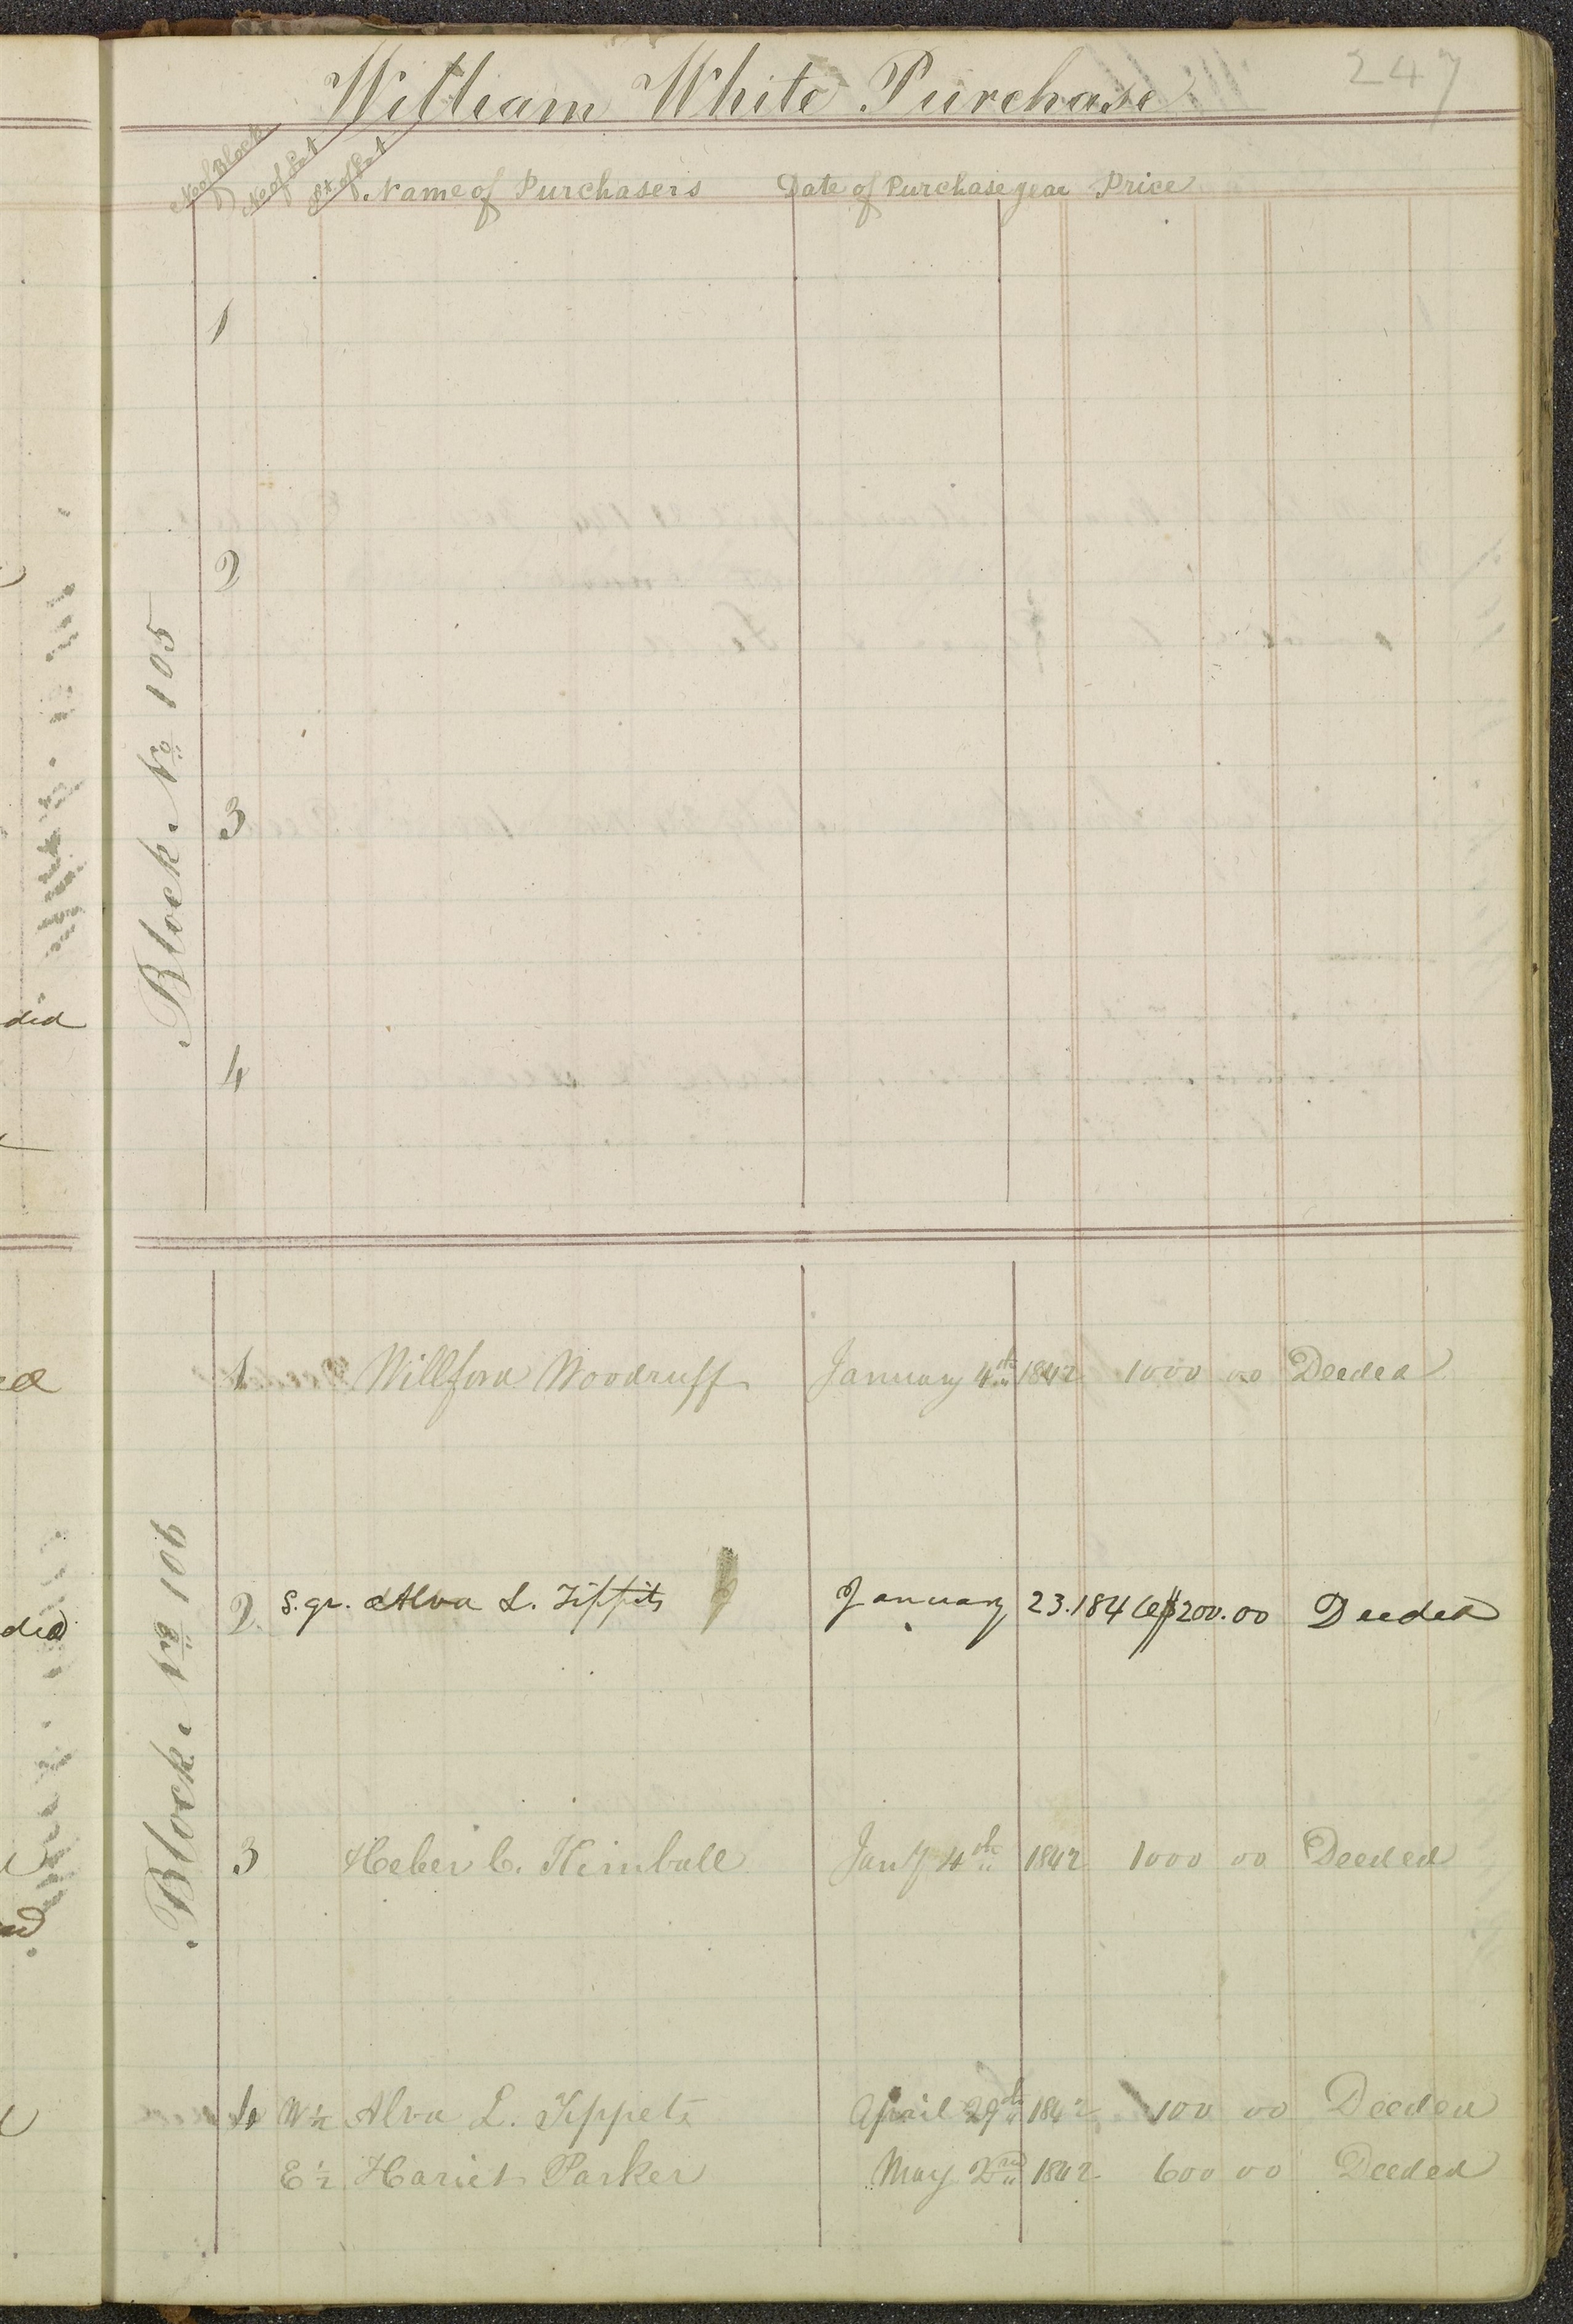 247
William White Purchase
No of Block No of Lot Pt of Lot Name of Purchasers Date of Purchase year Price
Block. No 105
1
2
3
4
Block. No 106
1 Willford Woodruff January 4th 1842 1000 00 Deeded
2 S. qr. Alva L. Tippits January 23. 1846 $200.00 Deeded
3 Heber C. Kimball Jany 4th 1842 1000 00 Deeded
4 W ½ Alva L. Tippets April 29th 1842 100 00 Deeded
E ½ Hariet Parker May 2nd 1842 600 00 Deeded
ded
ded